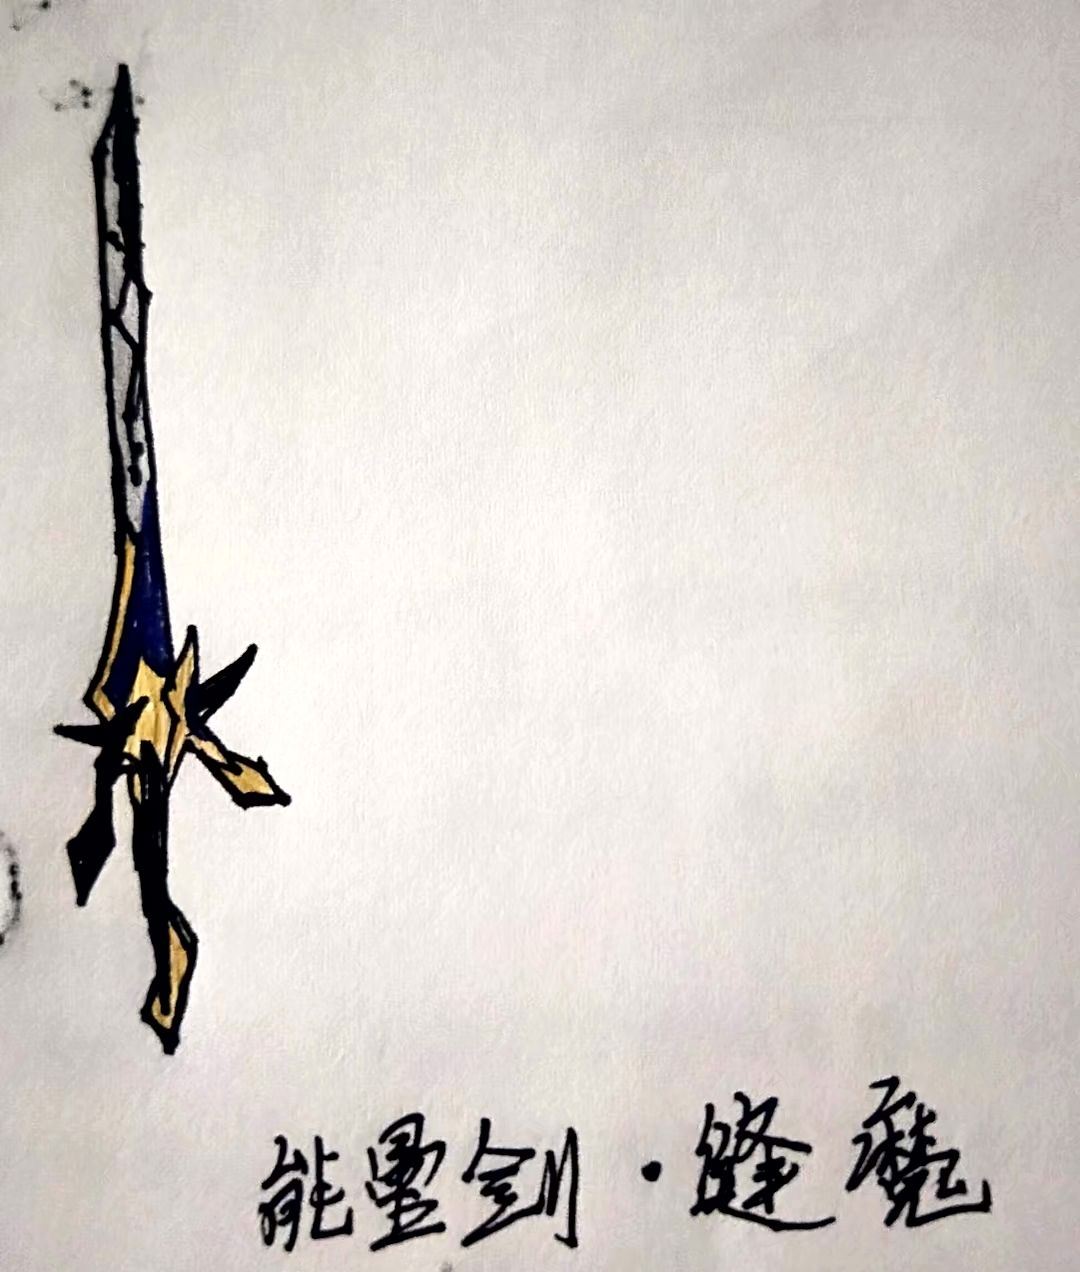 能量剑·缝魔